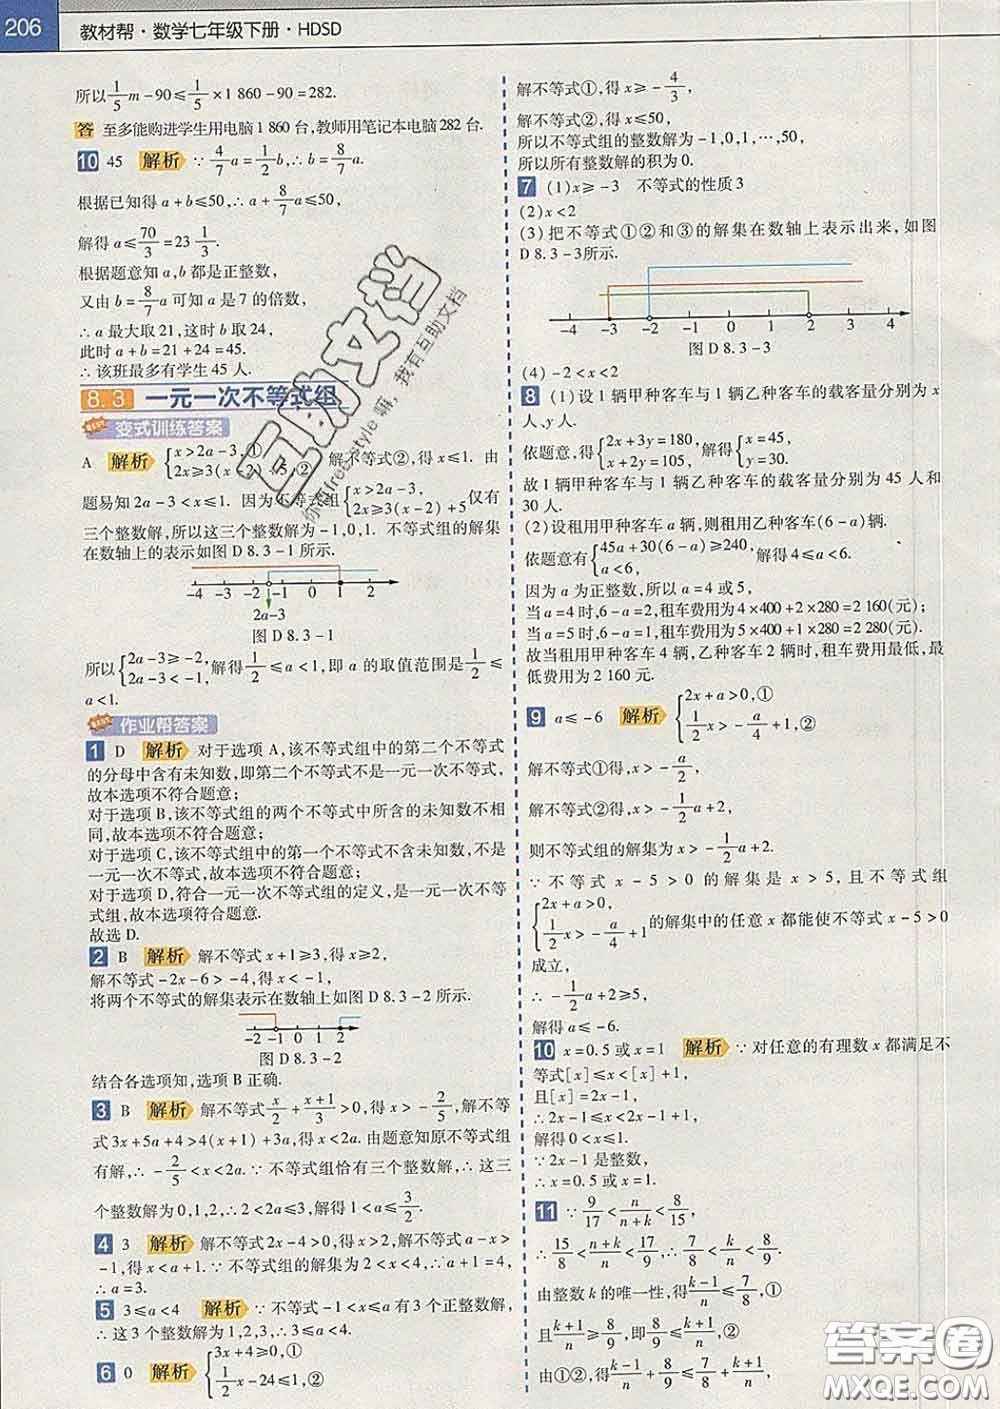 206 教材帮·数学七年级下册·HDSD
所以1/5 m-90≤1/5×1 860-90=282.
答 至多能购进学生用电脑1 860台,教师用笔记本电脑282台.
10 45 解析 ∵4/7 a=1/2 b,∴b=8/7 a.
根据已知得a+b≤50,∴a+8/7 a≤50,
解得a≤70/3=23 1/3.
根据题意知a,b都是正整数,
又由b=8/7 a可知a是7的倍数,
∴a最大取21,这时b取24,
此时a+b=21+24=45.
∴该班最多有学生45人.
8.3 一元一次不等式组
变式训练答案
A 解析 {x>2a-3,① 2x≥3(x-2)+5,② 解不等式②,得x≤1. 由
题易知2a-3<x≤1. 因为不等式组{x>2a-3, 2x≥3(x-2)+5 仅有
三个整数解,所以这三个整数解为-1,0,1. 不等式组的解集
在数轴上的表示如图D 8.3-1所示.
-4 -3 -2 -1 0 1 2
2a-3
图D 8.3-1
所以{2a-3≥-2, 2a-3<-1, 解得1/2≤a<1,即a的取值范围是1/2≤
a<1.
作业帮答案
1 D 解析 对于选项A,该不等式组中的第二个不等式
的分母中含有未知数,即第二个不等式不是一元一次不等式,
故本选项不符合题意;
对于选项B,该不等式组的两个不等式中所含的未知数不相
同,故本选项不符合题意;
对于选项C,该不等式组中的第一个不等式不含未知数,不是
一元一次不等式,故本选项不符合题意;
对于选项D,符合一元一次不等式组的定义,是一元一次不等
式组,故本选项符合题意.
故选D.
2 B 解析 解不等式x+1≥3,得x≥2,
解不等式-2x-6>-4,得x<-1,
将两个不等式的解集表示在数轴上如图D 8.3-2所示.
-2 -1 0 1 2 3
图D 8.3-2
结合各选项知,选项B正确.
3 B 解析 解不等式x/2+(x+1)/3>0,得x>-2/5,解不等
式3x+5a+4>4(x+1)+3a,得x<2a.由题意知原不等式组
有解,∴-2/5<x<2a.∵不等式组恰有三个整数解,∴这三
个整数解为0,1,2,∴2<2a≤3,解得1<a≤3/2.
4 3 解析 解不等式2x-4>0,得x>2,解不等式a-x>
-1,得x<a+1.∵不等式组的解集为2<x<4,∴a+1=4,
∴a=3.
5 3≤a<4 解析 ∵不等式-1<x≤a有3个正整数解,
∴这3个整数解为1,2,3,∴3≤a<4.
6 0 解析 {3x+4≥0,① 1/2 x-24≤1,②
解不等式①,得x≥-4/3,
解不等式②,得x≤50,
所以不等式组的整数解为-1,0,1,…,50,
所以所有整数解的积为0.
7 (1)x≥-3 不等式的性质3
(2)x<2
(3)把不等式①②和③的解集在数轴上表示出来,如图
D 8.3-3所示.
-4 -3 -2 -1 0 1 2 3 4
图D 8.3-3
(4)-2<x<2
8 (1)设1辆甲种客车与1辆乙种客车的载客量分别为x
人,y人.
依题意,得{2x+3y=180, x+2y=105, 解得{x=45, y=30.
故1辆甲种客车与1辆乙种客车的载客量分别为45人和
30人.
(2)设租用甲种客车a辆,则租用乙种客车(6-a)辆.
依题意有{45a+30(6-a)≥240, a<6, 解得4≤a<6.
因为a为正整数,所以a=4或5,
当a=4时,6-a=2,租车费用为4×400+2×280=2 160(元);
当a=5时,6-a=1,租车费用为5×400+1×280=2 280(元).
故当租用甲种客车4辆,乙种客车2辆时,租车费用最低,最
低费用为2 160元.
9 a≤-6 解析 {2x+a>0,① 1/2 x>-a/4+1,②
解不等式①得,x>-a/2,
解不等式②得,x>-1/2 a+2,
则不等式组的解集为x>-1/2 a+2.
∵不等式x-5>0的解集是x>5,且不等式组
{2x+a>0, 1/2 x>-a/4+1 的解集中的任意x都能使不等式x-5>0
成立,
∴-1/2 a+2≥5,
解得a≤-6.
10 x=0.5或x=1 解析 ∵对任意的有理数x都满足不
等式[x]≤x<[x]+1,
且[x]=2x-1,
∴2x-1≤x<2x-1+1,
解得0<x≤1.
∵2x-1是整数,
∴x=0.5或x=1.
11 ∵9/17<n/(n+k)<8/15,
∴15/8<(n+k)/n<17/9,∴7/8<k/n<8/9,
由整数k的唯一性,得(k-1)/n≤7/8,①
且(k+1)/n≥8/9,即8/9≤(k+1)/n,②
由①②,得(k-1)/n+8/9≤7/8+(k+1)/n,
互助文档
你的free style 嘛,我有互助文档
答案圈
MXQE.COM